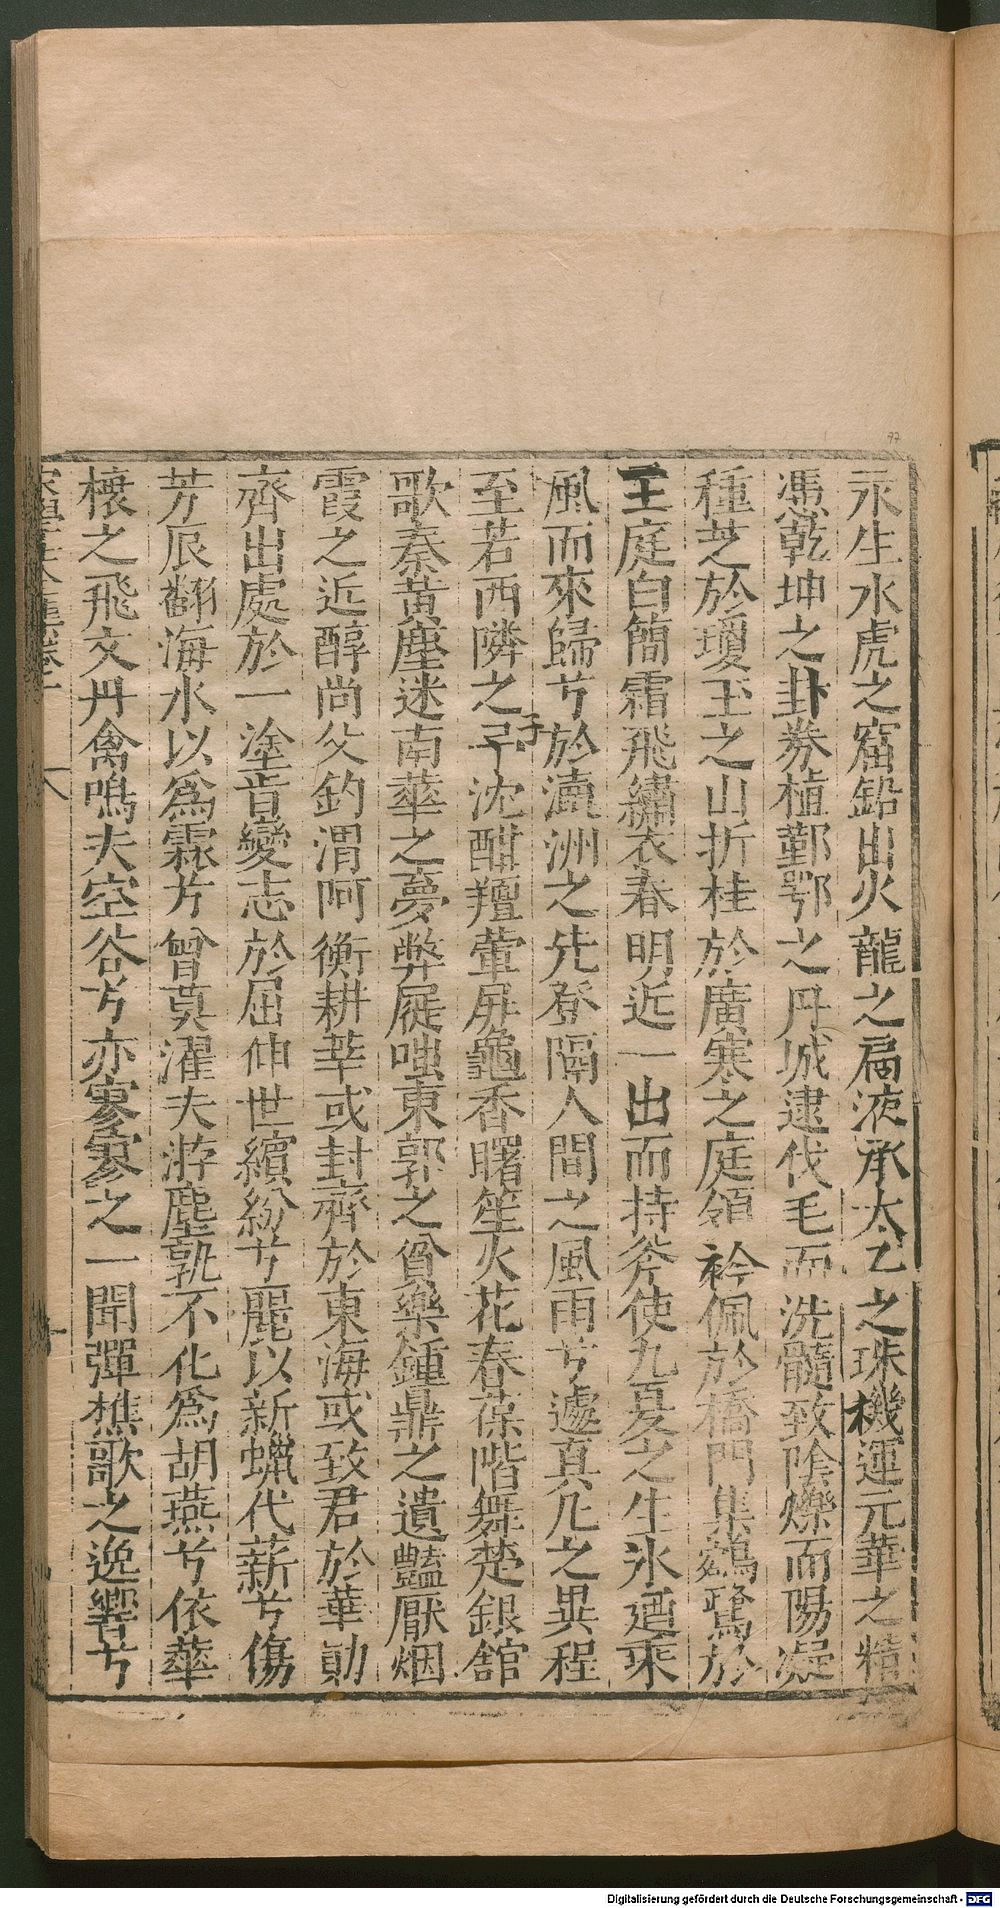 汞生水虎之窟鉛出火龍之扃液承太乙之珠機運元華之精
憑乾坤之卦券植鄞鄂之丹城逮伐毛而洗髓致陰爍而陽凝
種芝於瓊玉之山折桂於廣寒之庭領衿佩於橋門集鵷鷺於
王庭白簡霜飛繡衣春明近一出而持斧使九夏之生氷廼乘
風而來歸兮於瀛洲之先登隔人間之風雨兮遽真凡之異程
至若西隣之子沈酣羶葷屏龜香曙笙火花春葆階舞楚銀舘
歌秦黄塵迷南華之夢弊屣嗤東郭之貧樂鍾鼎之遺豔厭烟
霞之近醇尚父釣渭阿衡耕莘或封齊於東海或致君於華勛
齊出處於一塗肯變志於屈伸世繽紛兮麗以新蠟代薪兮傷
芳辰翻海水以爲霖兮曾莫濯夫游塵孰不化爲胡燕兮依華
榱之飛文丹禽鳴夫空谷兮亦寥寥之一聞彈樵歌之逸響兮
八
77
Digitalisierung gefördert durch die Deutsche Forschungsgemeinschaft - DFG